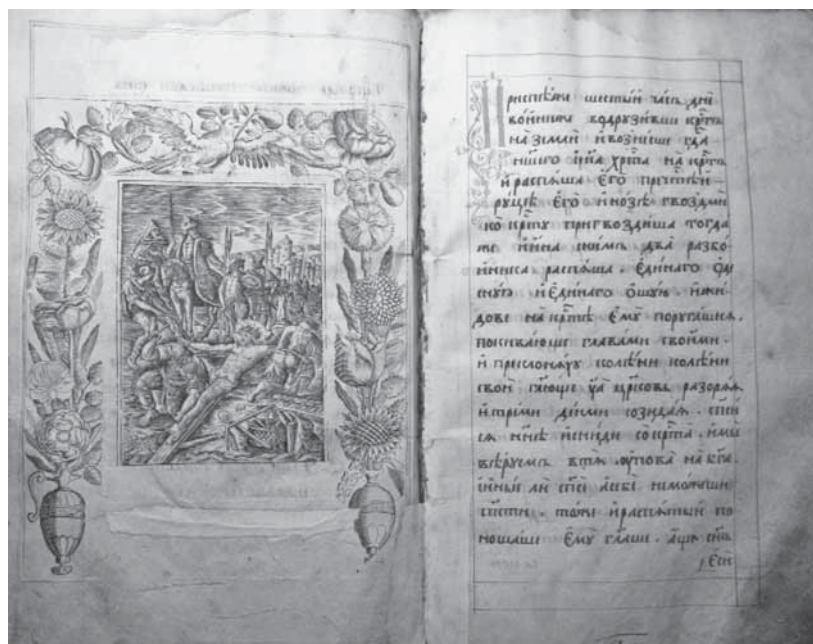 Приспѣвши шестый часъ дне
воини водрузивши крⷭтъ
на земли и вознесше гда
ншего ииⷭа хрⷭта на крⷭтъ
и распяша Его пречтѣи
руцѣ Его и нозѣ гвоздми
ко крⷭту пригвоздиша тогда
же и ина с нимъ два разбо
йника распяша. Единаго оде
сную и Единаго ошуюю. и жи
дове на крⷭтѣ Ему поругашия.
покивающе главами своими.
и преклоняху колѣни колѣни
свои глюще уа црковь разоряя
и трими денми созидая. спси
ся самъ и сниди со крⷭта. и мы
вѣруемъ в тя. упова на бга.
иныя ли спсе а себе не можеши
спсти. тоже и распятый по
ношаше Ему глаше. аще снъ
Еси